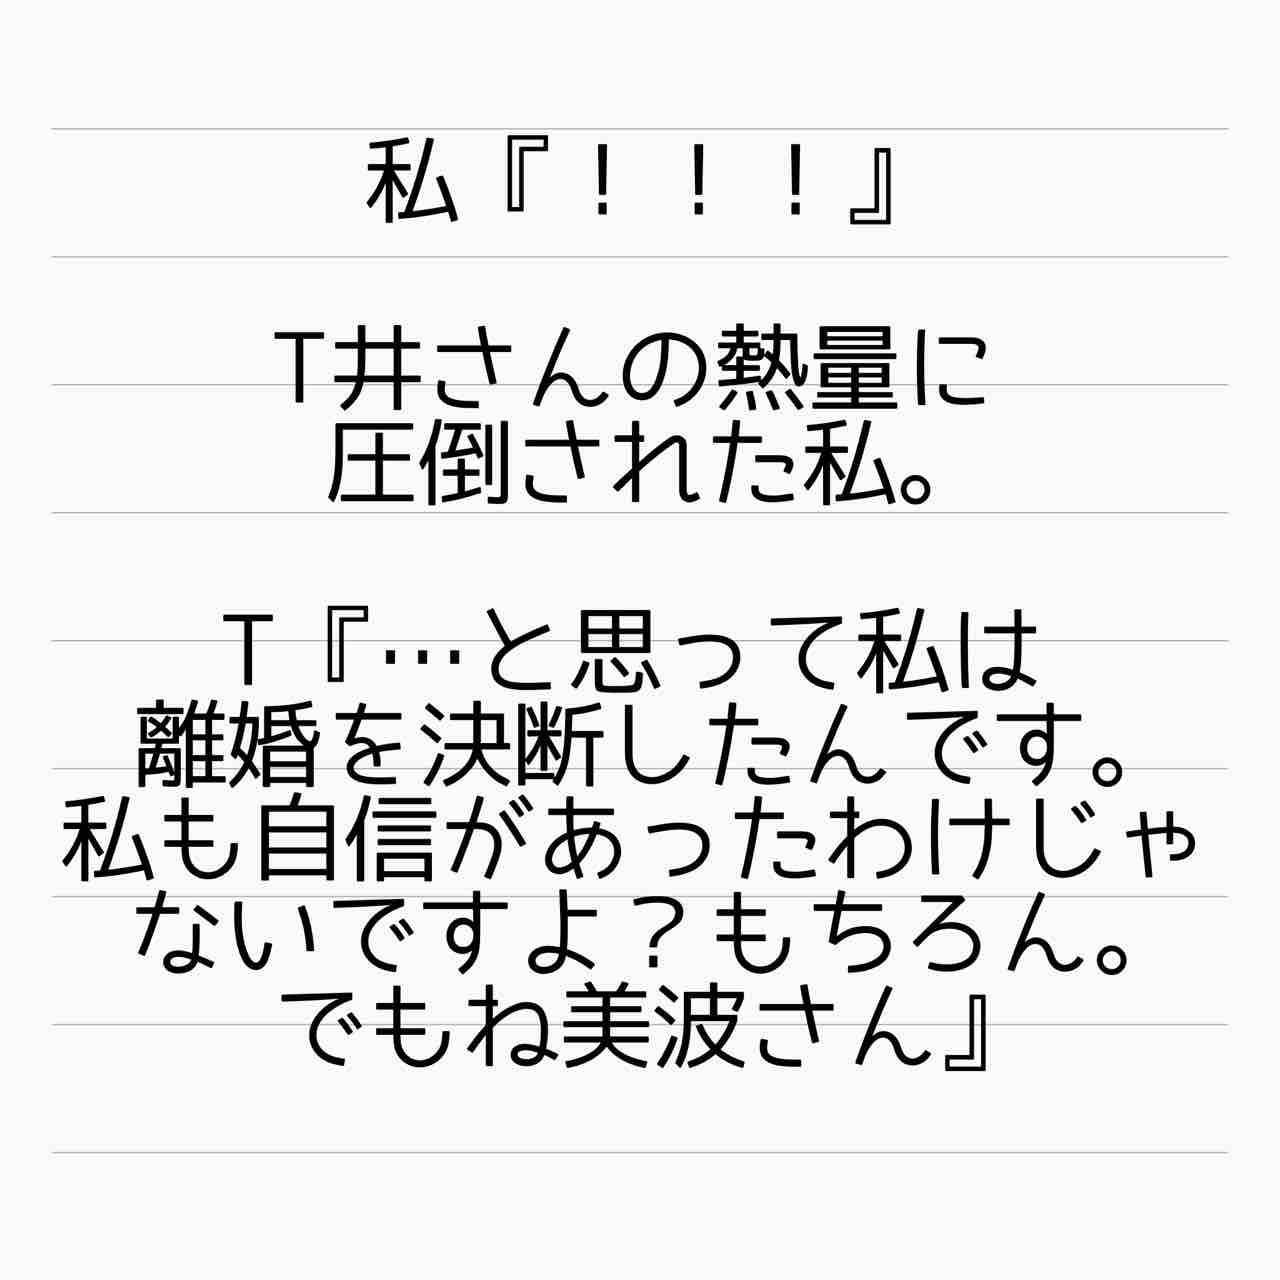 私『！！！』
T井さんの熱量に
圧倒された私。
T『…と思って私は
離婚を決断したんです。
私も自信があったわけじゃ
ないですよ？もちろん。
でもね美波さん』